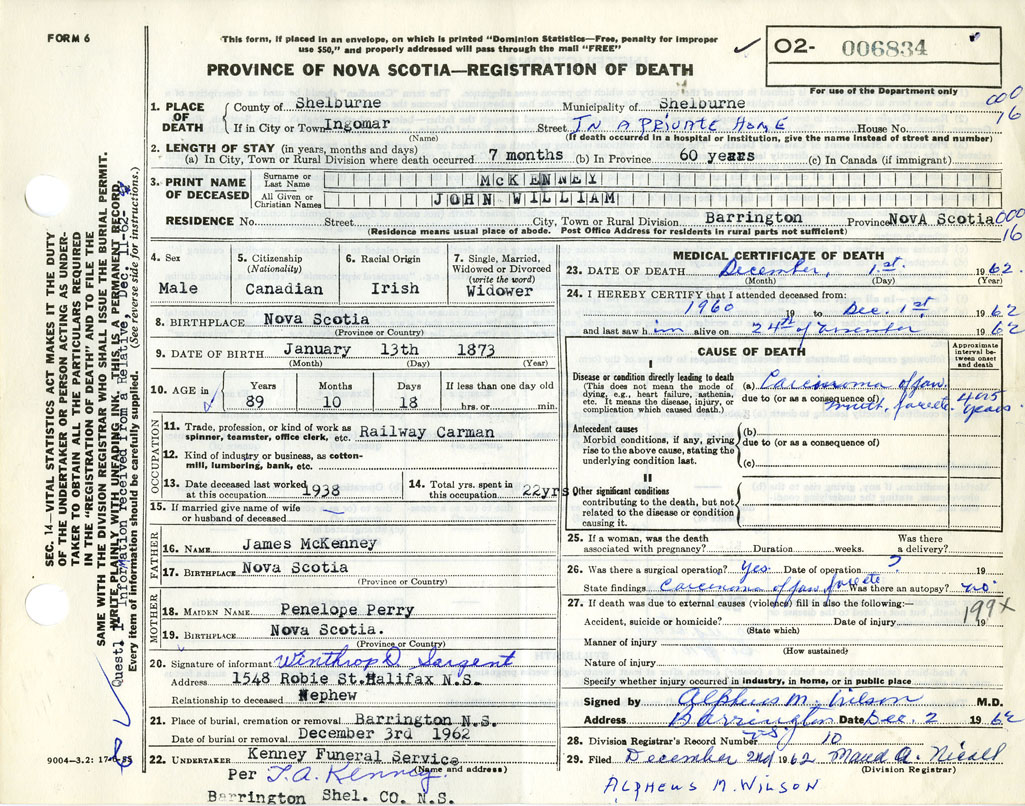 FORM 6
This form, if placed in an envelope, on which is printed "Dominion Statistics—Free, penalty for improper
use $50," and properly addressed will pass through the mail "FREE"
PROVINCE OF NOVA SCOTIA—REGISTRATION OF DEATH
O2- 006834
For use of the Department only
000
16
1. PLACE OF DEATH
County of Shelburne Municipality of Shelburne
If in City or Town Ingomar Street IN A PRIVATE HOME House No.
(Name) (If death occurred in a hospital or institution, give the name instead of street and number)
2. LENGTH OF STAY (in years, months and days)
(a) In City, Town or Rural Division where death occurred 7 months (b) In Province 60 years (c) In Canada (if immigrant)
3. PRINT NAME OF DECEASED
Surname or Last Name McKENNEY
All Given or Christian Names JOHN WILLIAM
RESIDENCE No. Street City, Town or Rural Division Barrington Province NovA Scotia 000
16
(Residence means usual place of abode. Post Office Address for residents in rural parts not sufficient)
4. Sex
Male
5. Citizenship
(Nationality)
Canadian
6. Racial Origin
Irish
7. Single, Married,
Widowed or Divorced
(write the word)
Widower
8. BIRTHPLACE Nova Scotia
(Province or Country)
9. DATE OF BIRTH January 13th 1873
(Month) (Day) (Year)
10. AGE in
Years Months Days If less than one day old
89 10 18 hrs. or min.
OCCUPATION
11. Trade, profession, or kind of work as
spinner, teamster, office clerk, etc. Railway Carman
12. Kind of industry or business, as cotton-
mill, lumbering, bank, etc.
13. Date deceased last worked
at this occupation 1938
14. Total yrs. spent in
this occupation 22yrs
15. If married give name of wife
or husband of deceased —
FATHER
16. NAME James McKenney
17. BIRTHPLACE Nova Scotia
(Province or Country)
MOTHER
18. MAIDEN NAME Penelope Perry
19. BIRTHPLACE Nova Scotia.
(Province or Country)
20. Signature of informant Winthrop D Sargent
Address 1548 Robie St. Halifax N.S.
Relationship to deceased Nephew
21. Place of burial, cremation or removal Barrington N.S.
Date of burial or removal December 3rd 1962
22. UNDERTAKER Kenney Funeral Service
(Name and address)
Per T.A. Kenney
Barrington Shel. CO. N.S.
MEDICAL CERTIFICATE OF DEATH
23. DATE OF DEATH December, 1.st. 1962
(Month) (Day) (Year)
24. I HEREBY CERTIFY that I attended deceased from:
1960 19 to Dec. 1st 1962
and last saw him alive on 24th of 1962
CAUSE OF DEATH
Approximate
interval be-
tween onset
and death
I
Disease or condition directly leading to death
(This does not mean the mode of
dying, e.g., heart failure, asthenia,
etc. It means the disease, injury, or
complication which caused death.)
(a) Carcinoma of jaw
due to (or as a consequence of) 4 or 5 years
Antecedent causes
Morbid conditions, if any, giving
rise to the above cause, stating the
underlying condition last.
(b)
due to (or as a consequence of)
(c)
II
Other significant conditions
contributing to the death, but not
related to the disease or condition
causing it.
25. If a woman, was the death
associated with pregnancy? Duration weeks. Was there
a delivery?
26. Was there a surgical operation? Yes Date of operation ? 19
State findings Carcinoma of jaw Was there an autopsy? no
27. If death was due to external causes (violence) fill in also the following:—
199X
Accident, suicide or homicide? Date of injury 19
(State which)
Manner of injury
(How sustained)
Nature of injury
Specify whether injury occurred in industry, in home, or in public place
Signed by Alpheus M. Wilson M.D.
Address Barrington Date Dec. 2 1962
28. Division Registrar's Record Number 10
29. Filed December 2nd 1962 Maud A. Nicoll
(Division Registrar)
ALPHEUS M. WILSON
SEC. 14—VITAL STATISTICS ACT MAKES IT THE DUTY
OF THE UNDERTAKER OR PERSON ACTING AS UNDER-
TAKER TO OBTAIN ALL THE PARTICULARS REQUIRED
IN THE "REGISTRATION OF DEATH" AND TO FILE THE
SAME WITH THE DIVISION REGISTRAR WHO SHALL ISSUE THE BURIAL PERMIT.
WRITE PLAINLY WITH UNFADING INK. THIS IS A PERMANENT RECORD.
Quest1 Information received from a Relative, Dec. 11-62-
Every item of information should be carefully supplied. (See reverse side for instructions.)
9004—3.2: 17-